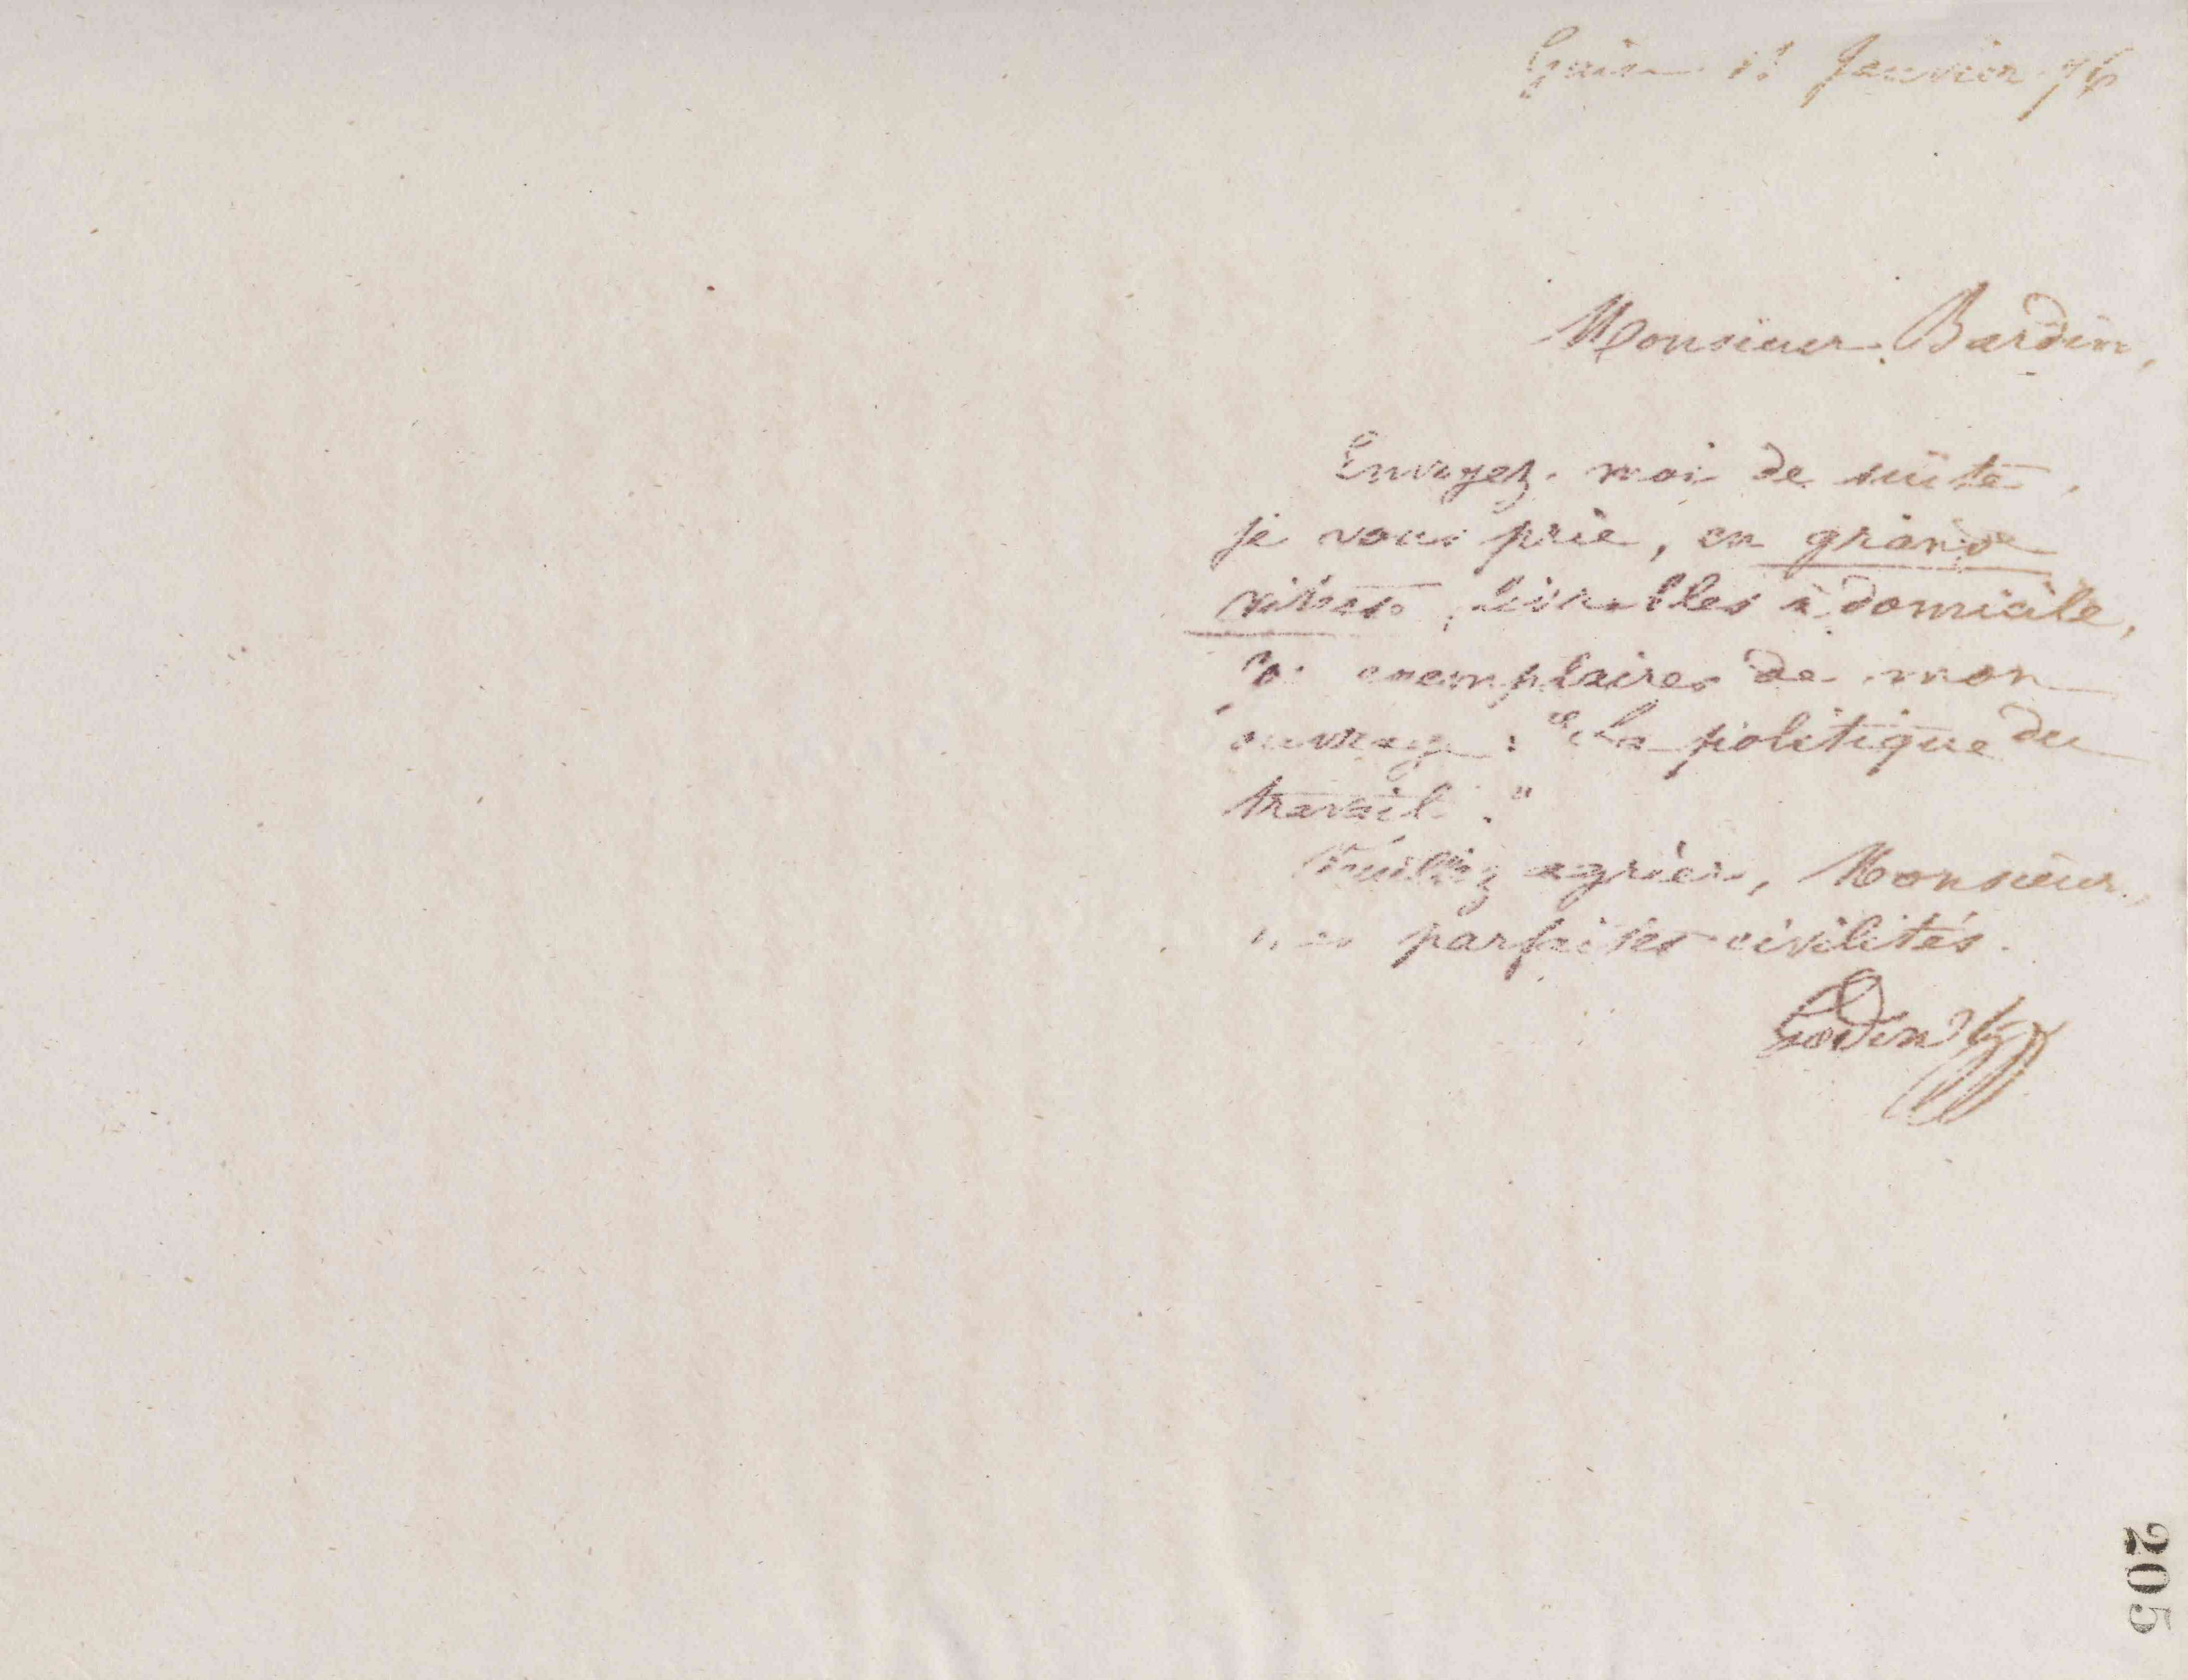 Guise Janvier 76
Monsieur Bardin,
Envoyez-moi de suite,
je vous prie, en grande
vitesse, livrables à domicile,
exemplaires de mon
ouvrage : "La politique du
travail."
Veuillez agréer, Monsieur,
mes parfaites civilités.
Godin
205